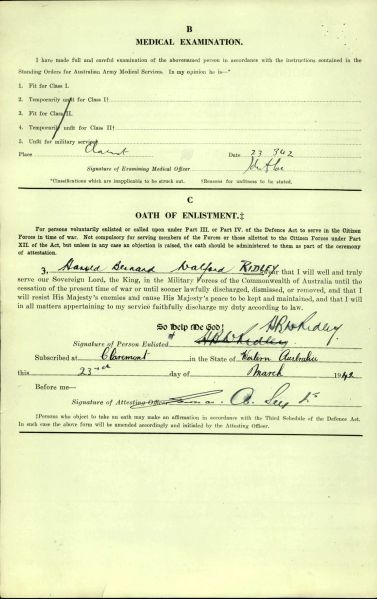 B
MEDICAL EXAMINATION.
I have made full and careful examination of the abovenamed person in accordance with the instructions contained in the
Standing Orders for Australian Army Medical Services. In my opinion he is—*
1. Fit for Class I.
2. Temporarily unfit for Class I†
3. Fit for Class II.
4. Temporarily unfit for Class II†
5. Unfit for military service†
Place Claremont Date 23 3 42
Signature of Examining Medical Officer
*Classifications which are inapplicable to be struck out. †Reasons for unfitness to be stated.
C
OATH OF ENLISTMENT.‡
For persons voluntarily enlisted or called upon under Part III. or Part IV. of the Defence Act to serve in the Citizen
Forces in time of war. Not compulsory for serving members of the Forces or those allotted to the Citizen Forces under Part
XII. of the Act, but unless in any case an objection is raised, the oath should be administered to them as part of the ceremony
of attestation.
I, Harold Bernard Walford RIDLEY swear that I will well and truly
serve our Sovereign Lord, the King, in the Military Forces of the Commonwealth of Australia until the
cessation of the present time of war or until sooner lawfully discharged, dismissed, or removed, and that I
will resist His Majesty's enemies and cause His Majesty's peace to be kept and maintained, and that I will
in all matters appertaining to my service faithfully discharge my duty according to law.
So Help Me God! HBWRidley
Signature of Person Enlisted HBWRidley
Subscribed at Claremont in the State of Western Australia
this 23rd day of March 1942
Before me—
Signature of Attesting Officer
‡Persons who object to take an oath may make an affirmation in accordance with Third Schedule of the Defence Act.
In such case the above form will be amended accordingly and initialed by the Attesting Officer.